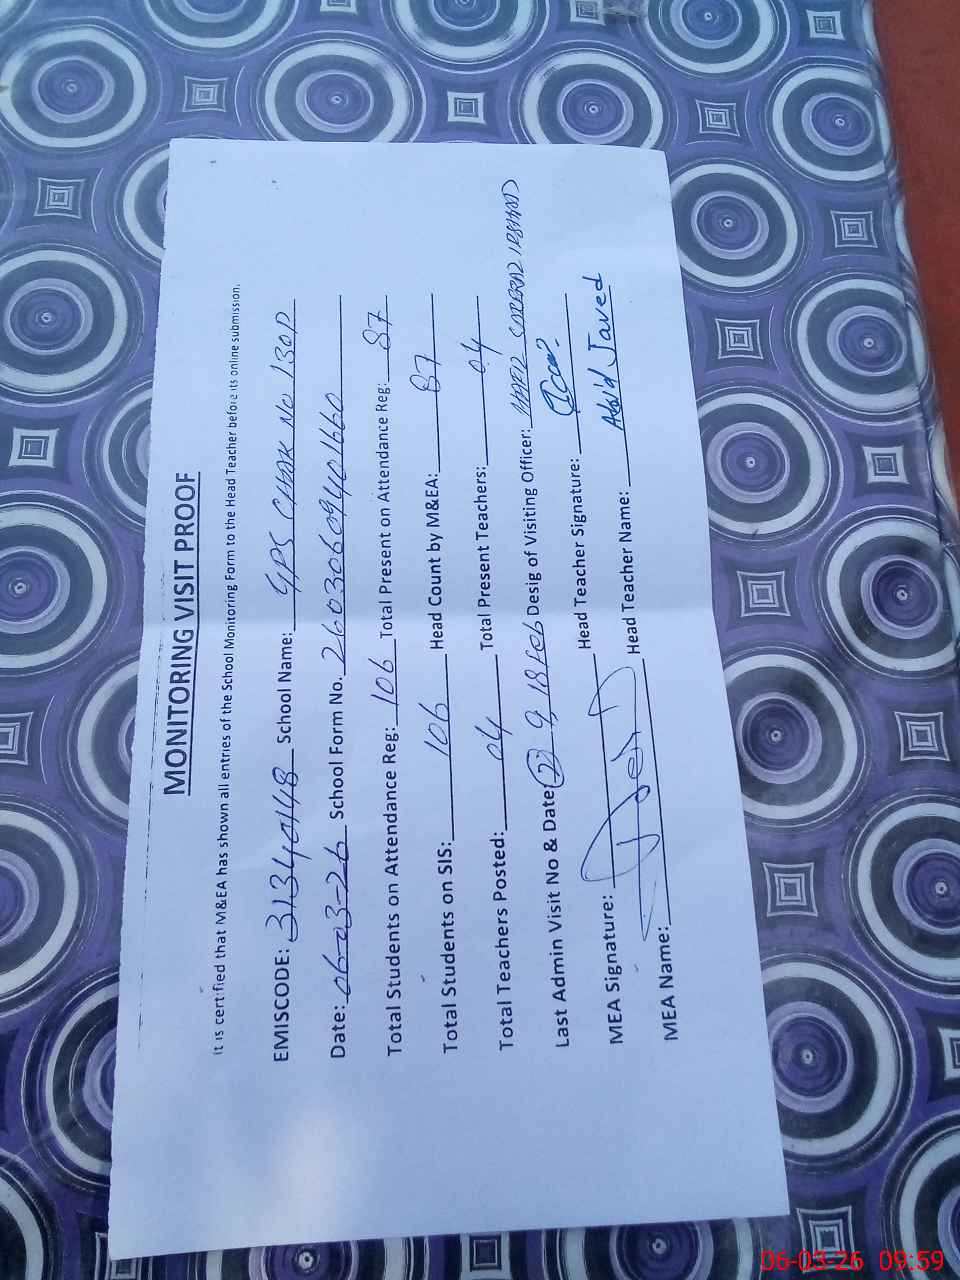 MONITORING VISIT PROOF
It is certified that M&EA has shown all entries of the School Monitoring Form to the Head Teacher before its online submission.
EMISCODE: 31340148 School Name: GPS CHAK NO 130P
Date: 06-03-26 School Form No. 26030609401660
Total Students on Attendance Reg: 106 Total Present on Attendance Reg: 87
Total Students on SIS: 106 Head Count by M&EA: 87
Total Teachers Posted: 04 Total Present Teachers: 04
Last Admin Visit No & Date: (2) 9, 18 Feb Desig of Visiting Officer:
MEA Signature: Head Teacher Signature:
MEA Name: Head Teacher Name: Abid Javed
06-03-26 09:59